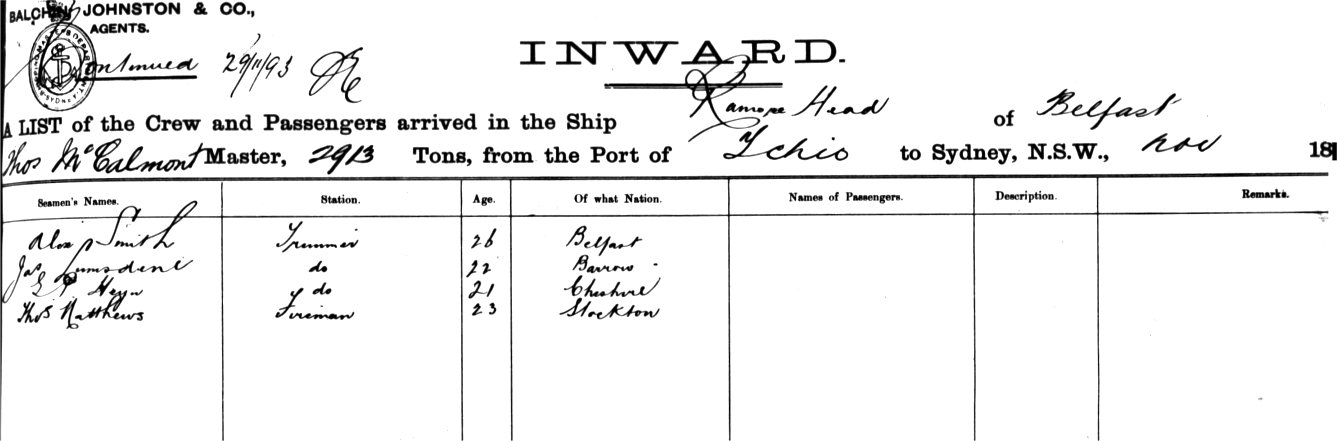 BALCHIN JOHNSTON & CO.,
AGENTS.
Continued 29/11/93
INWARD.
A LIST of the Crew and Passengers arrived in the Ship Ramore Head of Belfast
Thos McCalmont Master, 2913 Tons, from the Port of to Sydney, N.S.W., Nov 18
Seamen's Names. Station. Age. Of what Nation. Names of Passengers. Description. Remarks.
Smith Trimmer 26 Belfast
Jas Lumsdene do 22 Barrow
Heyn do 21 Cheshire
Thos Matthews Fireman 23 Stockton